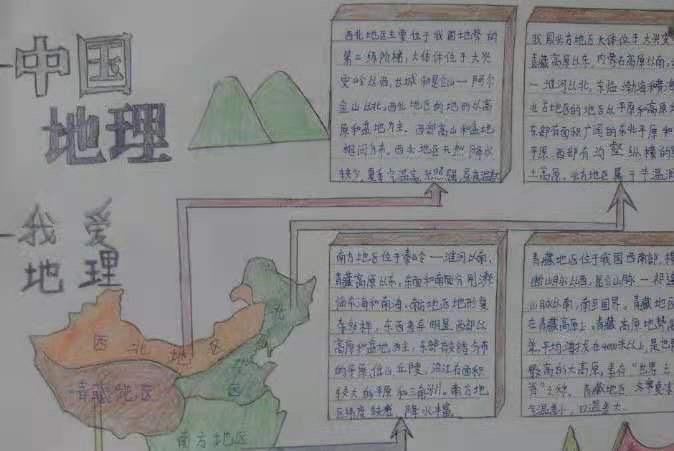 中国
地理
我爱
地理
西北地区主要位于我国地势的
第二级阶梯,大体位于大兴
安岭以西,长城和昆仑山—阿尔
金山以北,西北地区的地的以高
原和盆地为主。西部高山和盆地
相间分布。西北地区天然降水
较少,夏季气温高,光照强,昼夜温差
我国北方地区大体位于大兴安
青藏高原以东,内蒙古高原以南,
—淮河以北,东临渤海和黄海
北方地区的地区以平原和高原为
东部有面积广阔的东北平原和
平原,西部有沟壑纵横的
土高原。北方地区属于半温
南方地区位于秦岭—淮河以南,
青藏高原以东,东面和南面分别濒
临东海和南海。南方地区地形复
杂多样,东西差异明显,西部以
高原和盆地为主,东部
的平原,低山丘陵,沿江有面积
较大的平原和三角洲。南方地
区纬度较低,降水丰富
青藏地区位于我国西南部,横
断山脉以西,昆仑山脉—祁连
山脉以南,南至国界。青藏地区
在青藏高原上,青藏高原地势高
平均海拔在4000米以上,是世界
最高的大高原,素有“世界
之称。青藏地区
气温
西北地区
北方
地区
青藏地区
南方地区